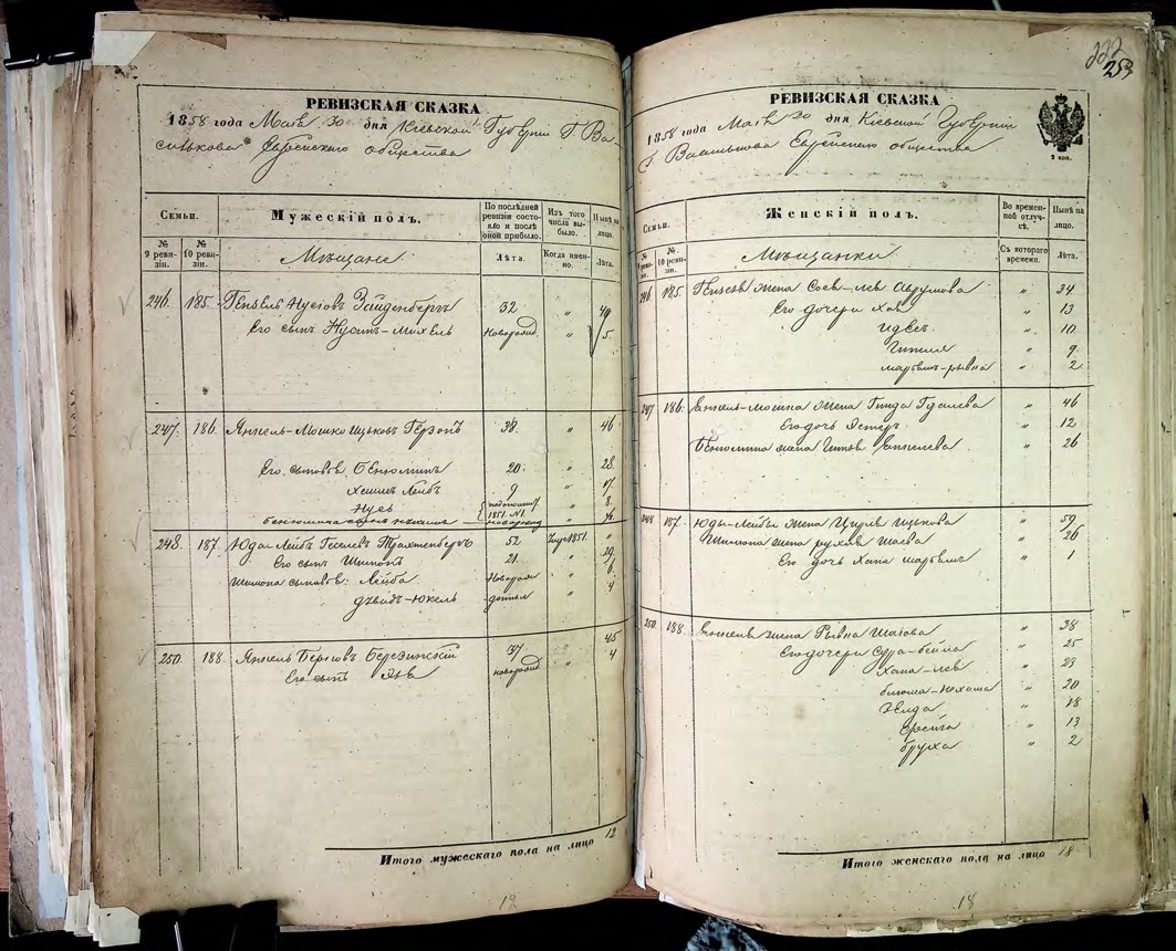 РЕВИЗСКАЯ СКАЗКА
1858 года Мая 30 дня Кіевской Губерніи Г. Ва-
силькова Еврейскаго общества
Семьи.
Мужескій полъ.
По послѣдней ревизіи состояло и послѣ оной прибыло.
Изъ того числа выбыло.
Нынѣ на лицо.
№ 9 ревизіи.
№ 10 ревизіи.
Мѣщане
Лѣта.
Когда именно.
Лѣта.
246. 185. Гензель Нусіовъ Зайденбергъ 32 "
Его сынъ Нусинъ-Михель Новорожд. " 5.
247. 186. Янкель-Мошко Ицьковъ 38. " 46
Его сыновья Бенюминъ 20. " 28.
Хаимъ Лейбъ 9 " 17
Нусь 1851. №1. " 8.
Бенюмина новорожд "
248. 187. Юда-Лейбъ Геселевъ Трахтенбергъ 52 1851. "
Его сынъ Шимонъ 21. " 29.
Шимона сыновья: Лейба Новорож " 6.
Дувидъ-Юкель денные " 4
250. 188. Янкель Берковъ Березинскій 37 " 45
Его сынъ новорожд " 4
Итого мужескаго пола на лицо 12
12
222
253
РЕВИЗСКАЯ СКАЗКА
1858 года Мая 30 дня Кіевской Губерніи
Г. Василькова Еврейскаго общества
Семьи.
Женскій полъ.
Во временной отлучкѣ.
Нынѣ на лицо.
№ 9 ревизіи.
№ 10 ревизіи.
Мѣщанки
Съ котораго времени.
Лѣта.
246. 185. Гензеля жена Аврумова " 34
Его дочери Хая " 13
Идесь " 10
Гитля " 9.
Марьямъ-рывка " 2
247. 186. Янкель-Мошка жена Гинда " 46
Его дочь Эстеръ " 12
Бенюмина жена Гитля " 26
248 187. Юды-Лейбы жена Цирля Ицькова " 59
Шимона жена рухля Шаева " 26
Его дочь Хана Марьямъ " 1
250. 188. Янкеля жена Рывка " 38
Его дочери Сура-бейла " 25
Хана-лея " 23
" 20
Зелда " 18
Фрейга " 13
бруха " 2
Итого женскаго пола на лицо 18
18